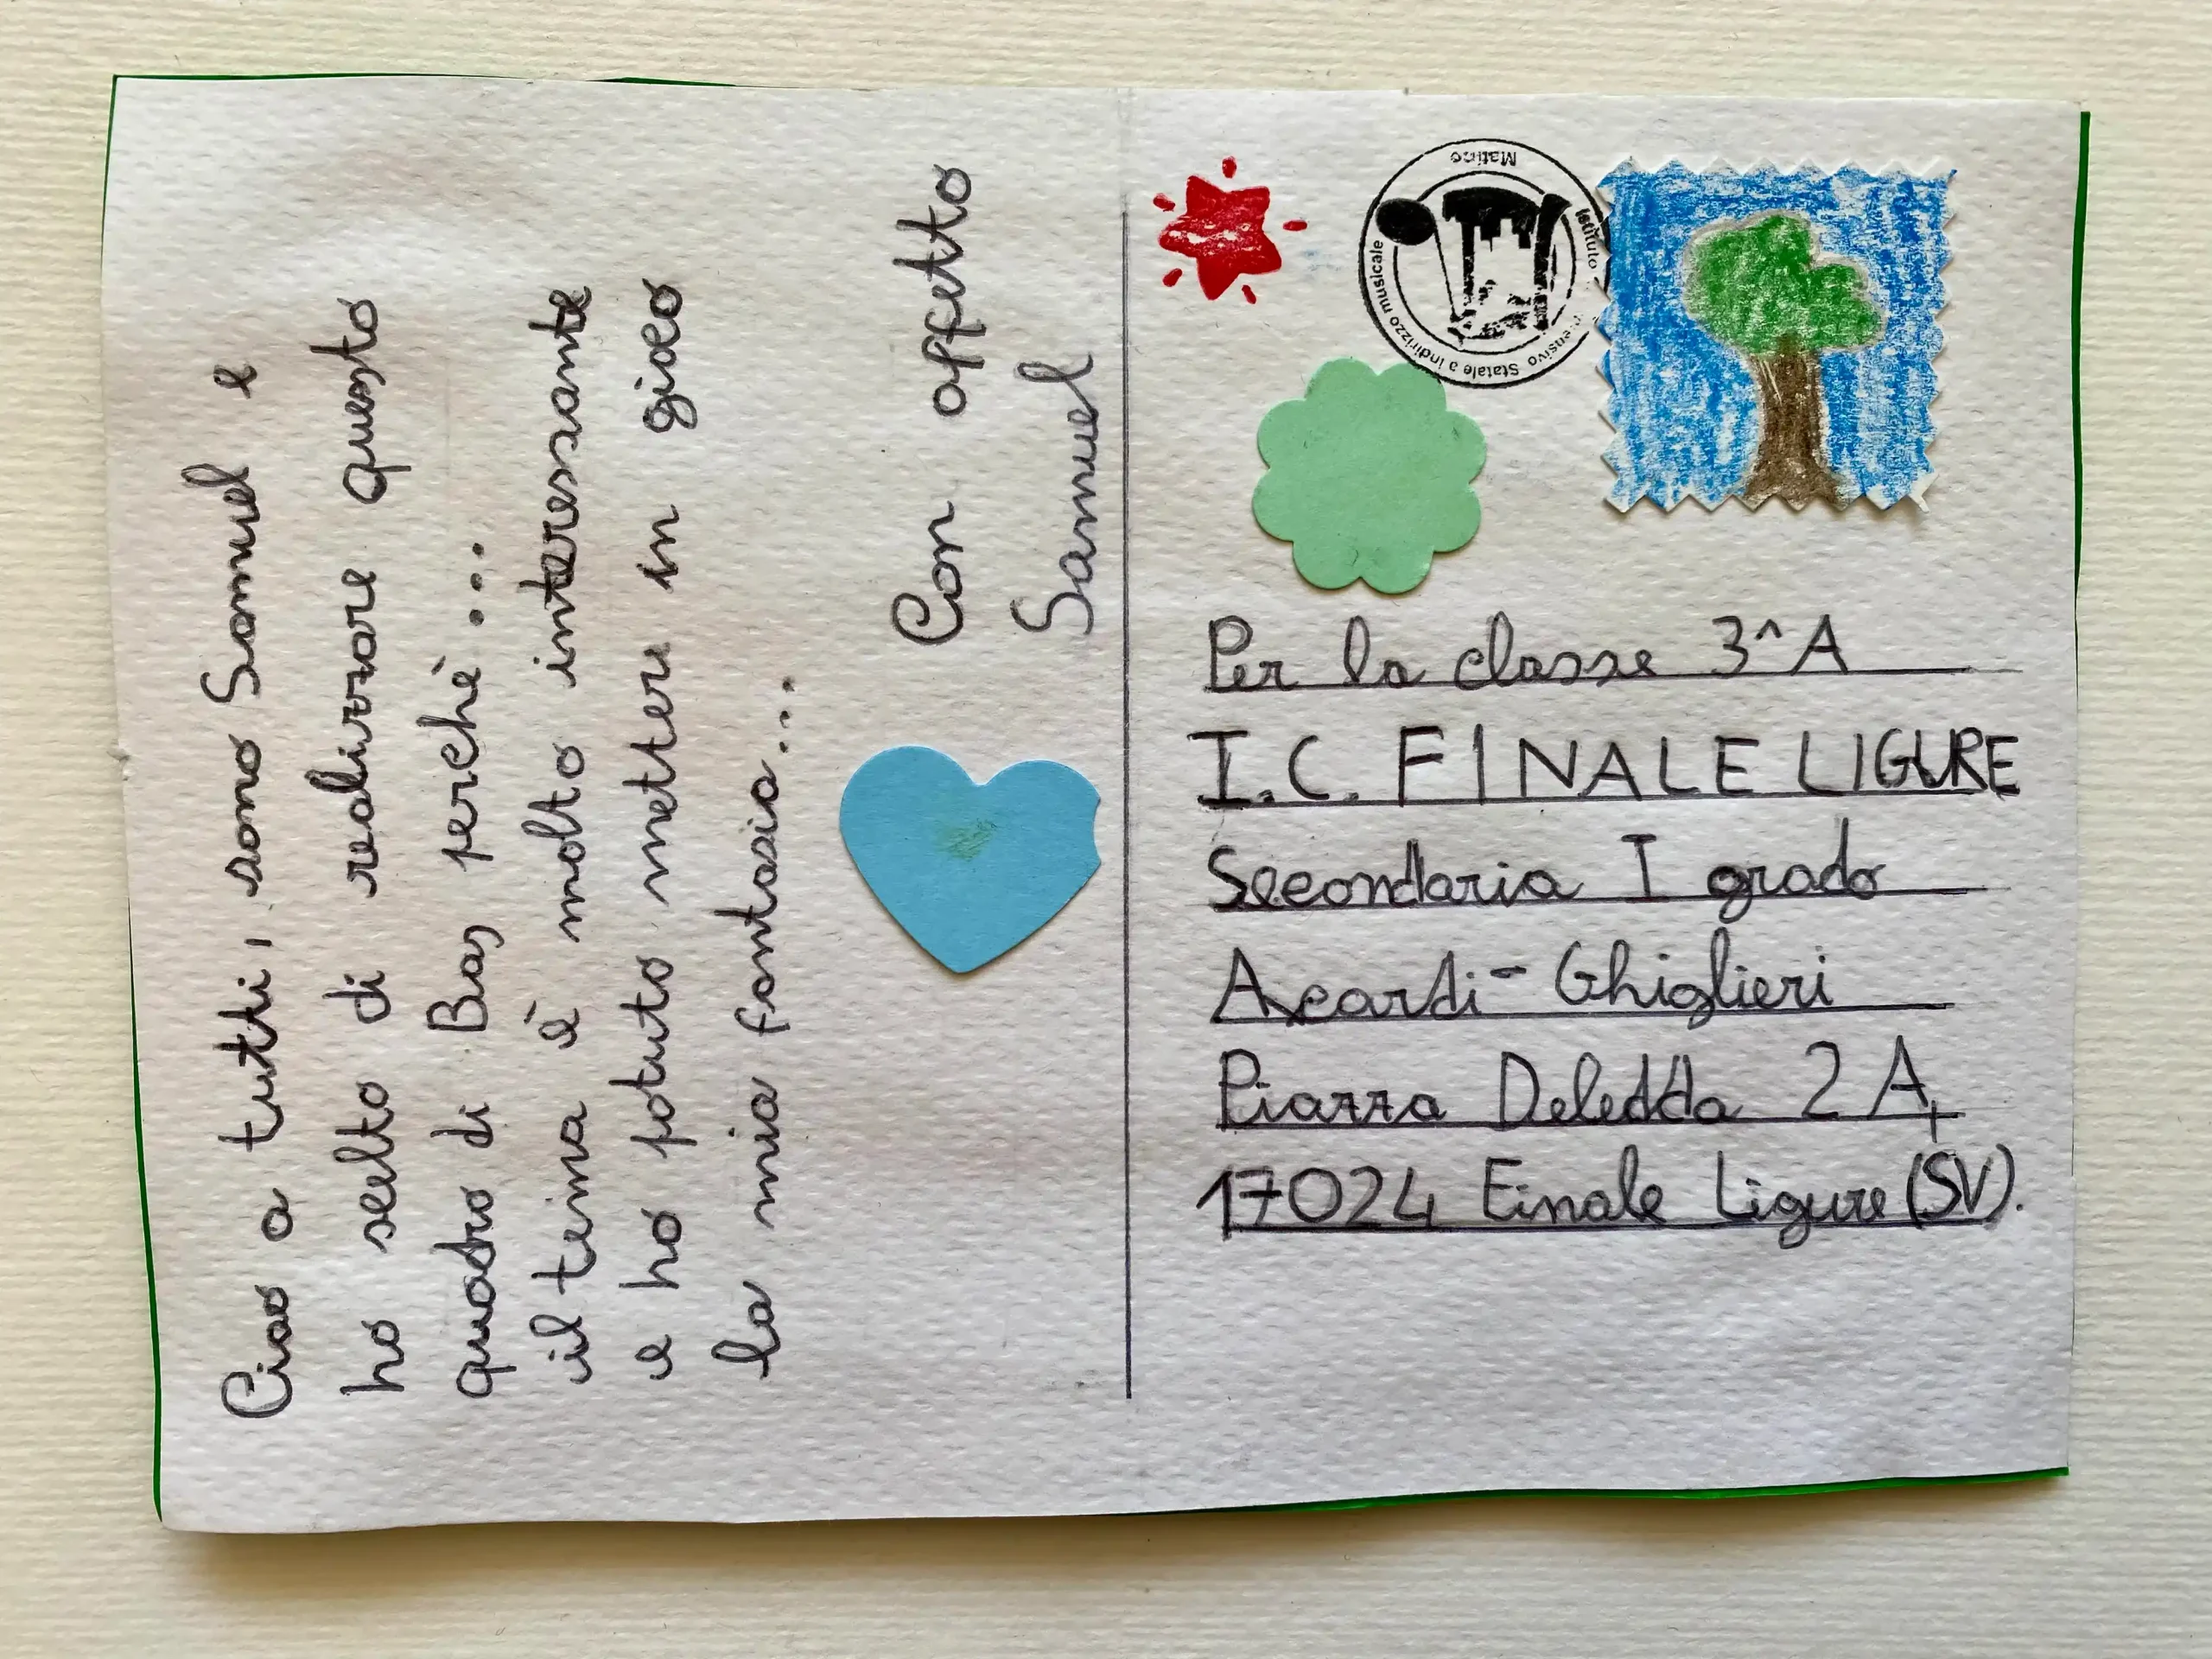 Ciao a tutti, sono Samuel e
ho scelto di realizzare questo
quadro di Bas perchè...
il tema è molto interessante
e ho potuto mettere in gioco
la mia fantasia...
Con affetto
Samuel
Matino
Istituto
ensivo Statale a indirizzo musicale
Per la classe 3^A
I.C. FINALE LIGURE
Secondaria I grado
Aycardi-Ghiglieri
Piazza Deledda 2 A,
17024 Finale Ligure (SV).